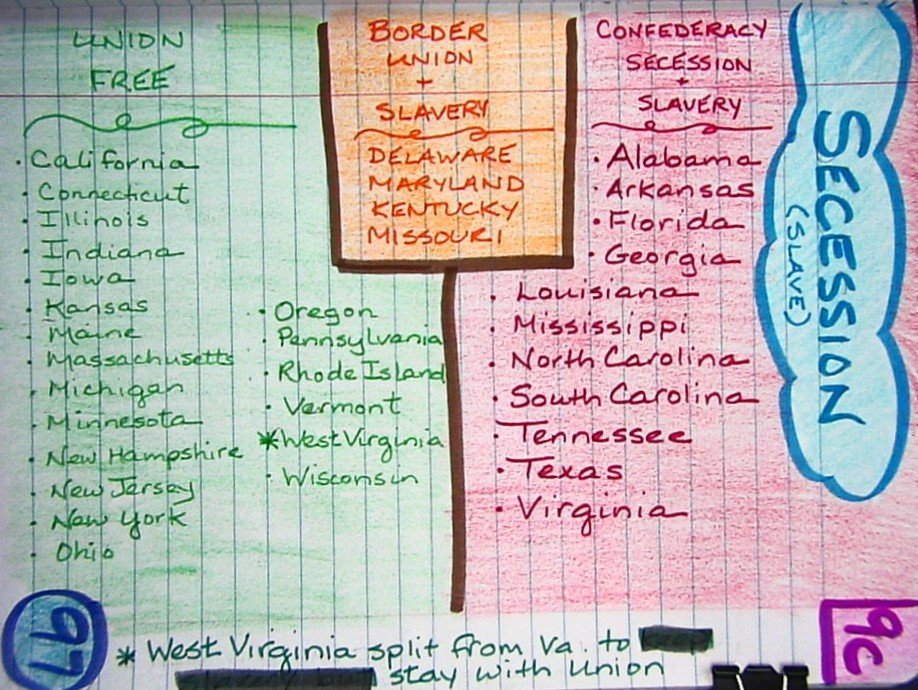 UNION
FREE
· California
· Connecticut
· Illinois
· Indiana
· Iowa
· Kansas
· Maine
· Massachusetts
· Michigan
· Minnesota
· New Hampshire
· New Jersey
· New York
· Ohio
· Oregon
· Pennsylvania
· Rhode Island
· Vermont
*West Virginia
· Wisconsin
BORDER
UNION
+
SLAVERY
DELAWARE
MARYLAND
KENTUCKY
MISSOURI
CONFEDERACY
SECESSION
+
SLAVERY
· Alabama
· Arkansas
· Florida
· Georgia
· Louisiana
· Mississippi
· North Carolina
· South Carolina
· Tennessee
· Texas
· Virginia
SECESSION
(SLAVE)
97
* West Virginia split from Va. to
stay with Union
9c